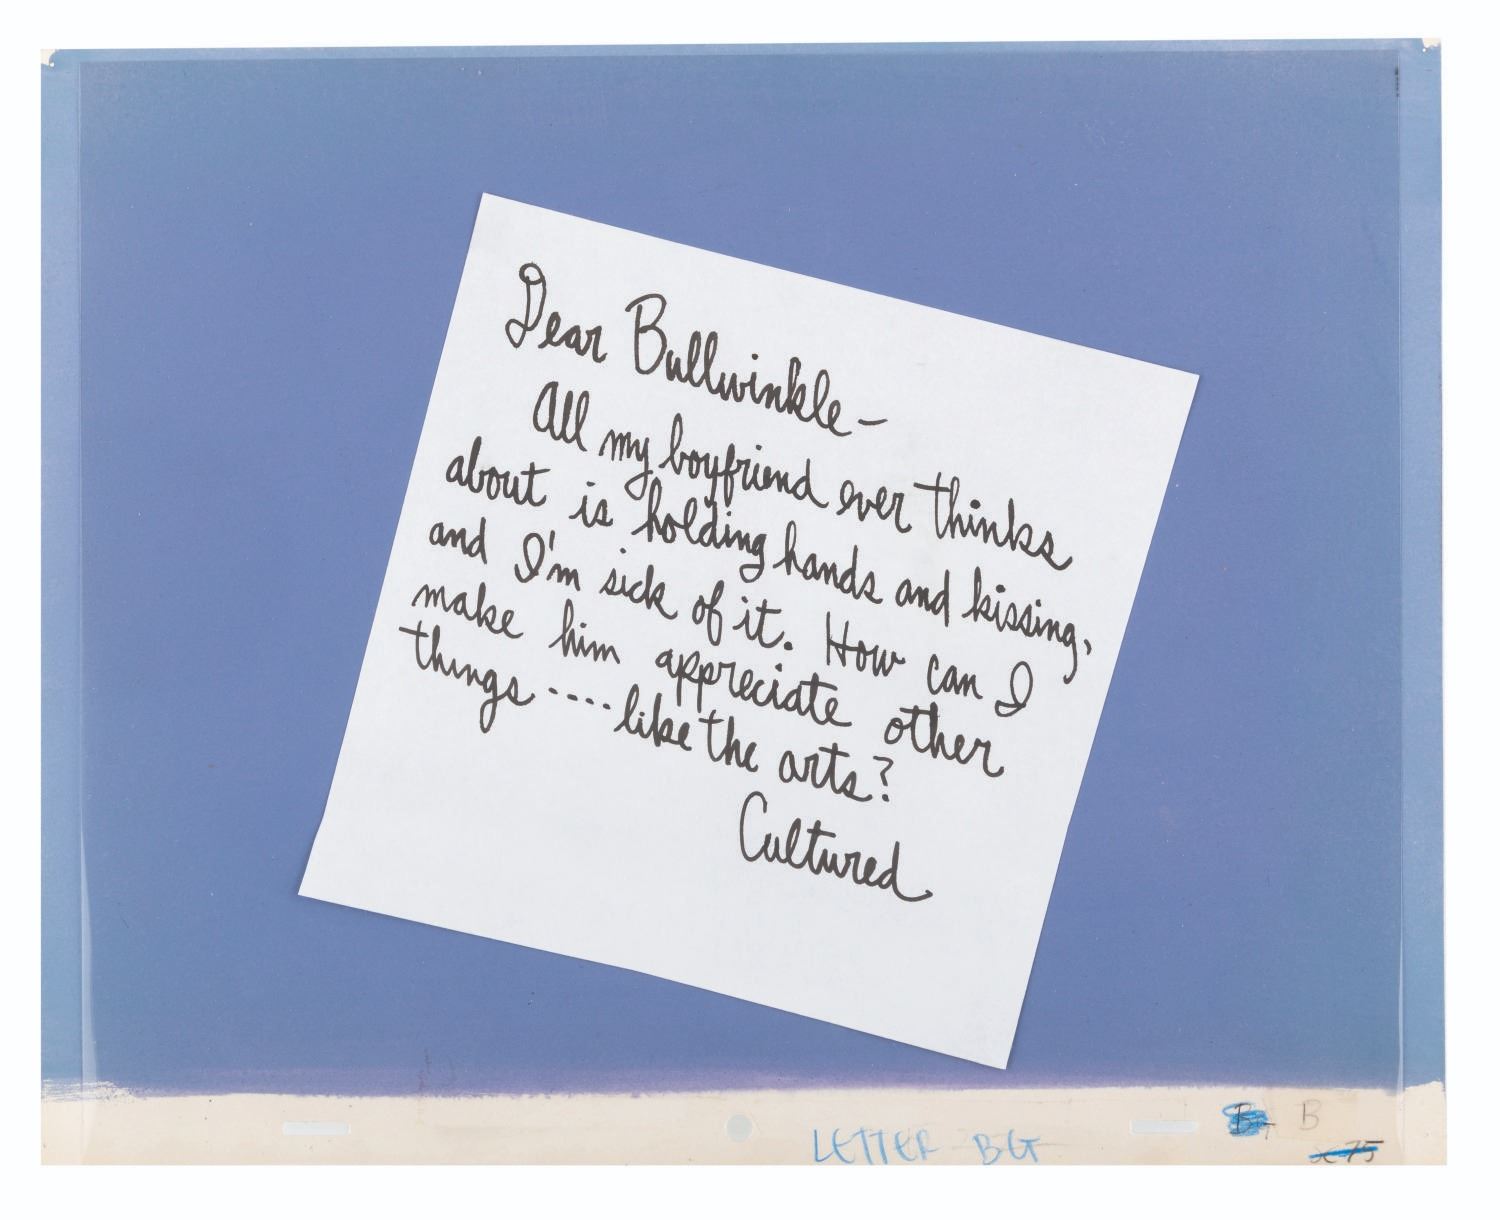 Dear Bullwinkle –
All my boyfriend ever thinks
about is holding hands and kissing,
and I'm sick of it. How can I
make him appreciate other
things....like the arts?
Cultured
LETTER BG
B